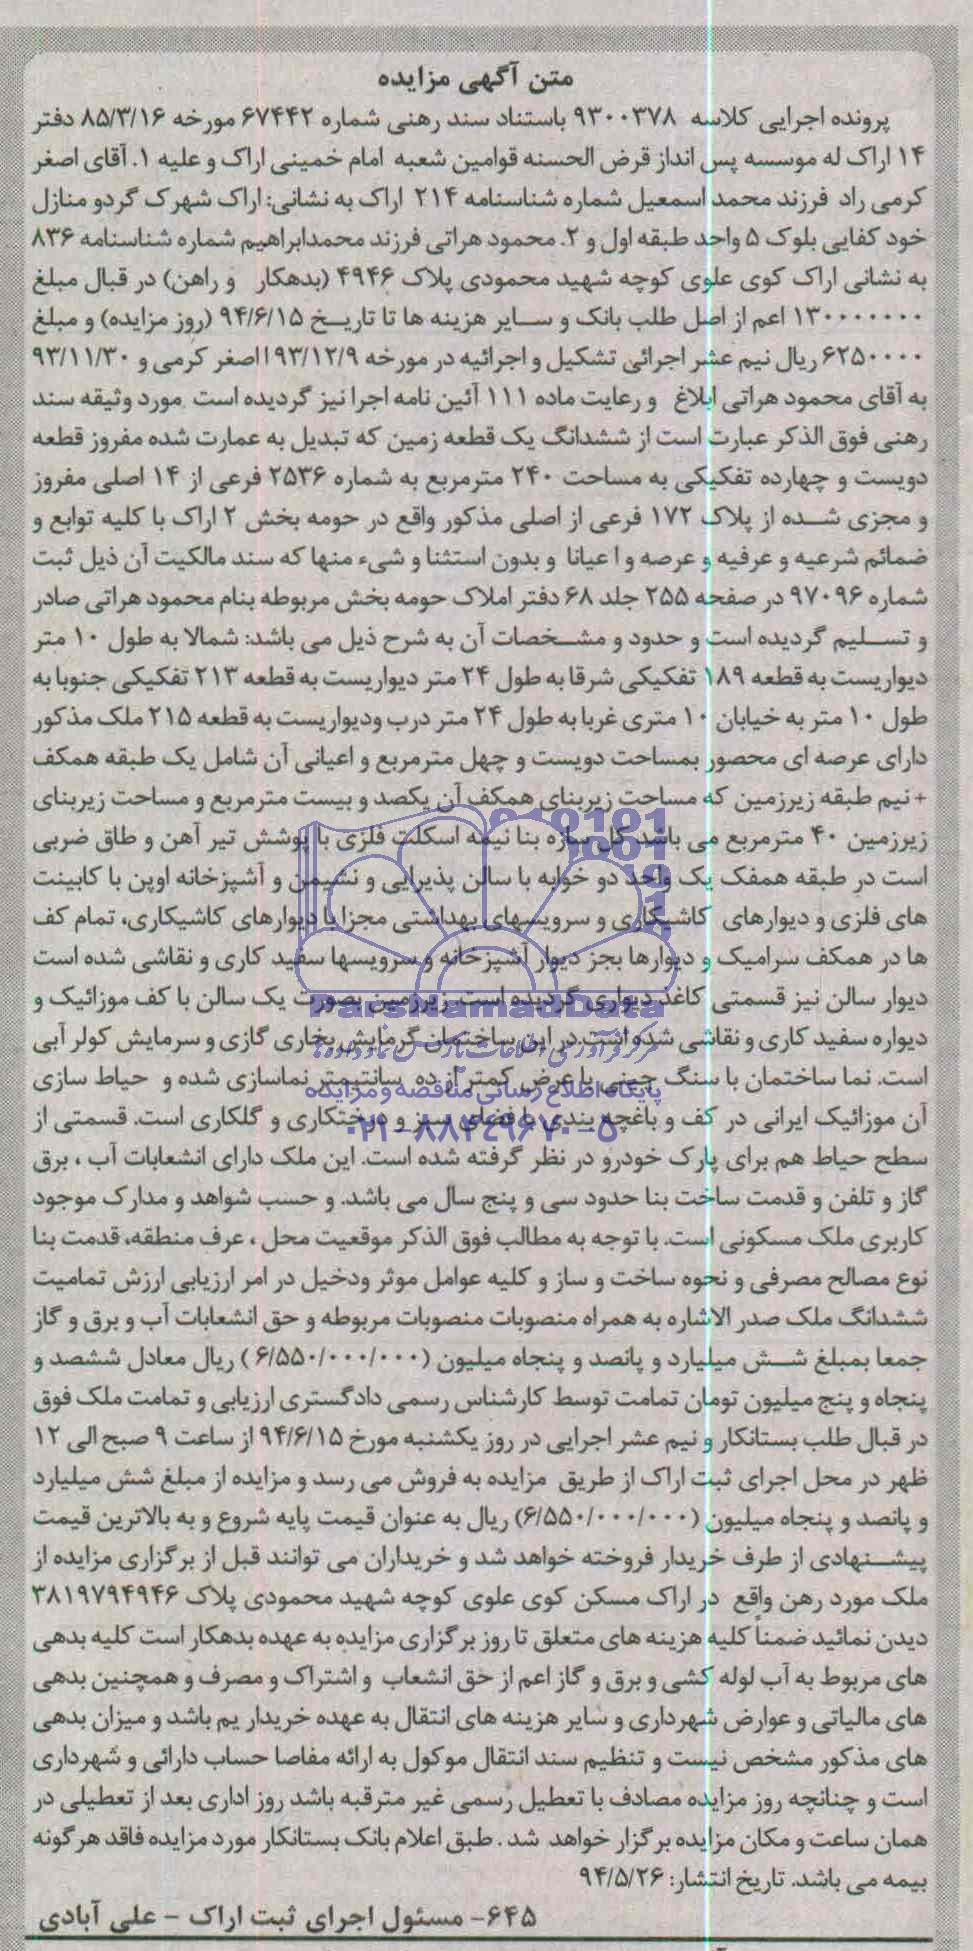 متن آگهی مزایده
پرونده اجرایی کلاسه ۹۳۰۰۳۷۸ باستناد سند رهنی شماره ۶۷۴۴۲ مورخه ۸۵/۳/۱۶ دفتر
۱۴ اراک له موسسه پس انداز قرض الحسنه قوامین شعبه امام خمینی اراک و علیه ۱. آقای اصغر
کرمی راد فرزند محمد اسمعیل شماره شناسنامه ۲۱۴ اراک به نشانی: اراک شهرک گردو منازل
خود کفایی بلوک ۵ واحد طبقه اول و ۲. محمود هراتی فرزند محمدابراهیم شماره شناسنامه ۸۳۶
به نشانی اراک کوی علوی کوچه شهید محمودی پلاک ۴۹۴۶ (بدهکار و راهن) در قبال مبلغ
۱۳۰۰۰۰۰۰۰ اعم از اصل طلب بانک و سایر هزینه ها تا تاریخ ۹۴/۶/۱۵ (روز مزایده) و مبلغ
۶۲۵۰۰۰۰ ریال نیم عشر اجرائی تشکیل و اجرائیه در مورخه ۹۳/۱۲/۹ اصغر کرمی و ۹۳/۱۱/۳۰
به آقای محمود هراتی ابلاغ و رعایت ماده ۱۱۱ آئین نامه اجرا نیز گردیده است مورد وثیقه سند
رهنی فوق الذکر عبارت است از ششدانگ یک قطعه زمین که تبدیل به عمارت شده مفروز قطعه
دویست و چهارده تفکیکی به مساحت ۲۴۰ مترمربع به شماره ۲۵۳۶ فرعی از ۱۴ اصلی مفروز
و مجزی شده از پلاک ۱۷۲ فرعی از اصلی مذکور واقع در حومه بخش ۲ اراک با کلیه توابع و
ضمائم شرعیه و عرفیه و عرصه و اعیانا و بدون استثنا و شیء منها که سند مالکیت آن ذیل ثبت
شماره ۹۷۰۹۶ در صفحه ۲۵۵ جلد ۶۸ دفتر املاک حومه بخش مربوطه بنام محمود هراتی صادر
و تسلیم گردیده است و حدود و مشخصات آن به شرح ذیل می باشد: شمالا به طول ۱۰ متر
دیواریست به قطعه ۱۸۹ تفکیکی شرقا به طول ۲۴ متر دیواریست به قطعه ۲۱۳ تفکیکی جنوبا به
طول ۱۰ متر به خیابان ۱۰ متری غربا به طول ۲۴ متر درب ودیواریست به قطعه ۲۱۵ ملک مذکور
دارای عرصه ای محصور بمساحت دویست و چهل مترمربع و اعیانی آن شامل یک طبقه همکف
+ نیم طبقه زیرزمین که مساحت زیربنای همکف آن یکصد و بیست مترمربع و مساحت زیربنای
زیرزمین ۴۰ مترمربع می باشد. کل سازه بنا نیمه اسکلت فلزی با پوشش تیر آهن و طاق ضربی
است در طبقه همفک یک واحد دو خوابه با سالن پذیرایی و نشیمن و آشپزخانه اوپن با کابینت
های فلزی و دیوارهای کاشیکاری و سرویسهای بهداشتی مجزا با دیوارهای کاشیکاری، تمام کف
ها در همکف سرامیک و دیوارها بجز دیوار آشپزخانه و سرویسها سفید کاری و نقاشی شده است
دیوار سالن نیز قسمتی کاغذ دیواری گردیده است. زیرزمین بصورت یک سالن با کف موزائیک و
دیواره سفید کاری و نقاشی شده است. در این ساختمان گرمایش بخاری گازی و سرمایش کولر آبی
است. نما ساختمان با سنگ چینی با عرض کمتر از ده سانتیمتر نماسازی شده و حیاط سازی
آن موزائیک ایرانی در کف و باغچه بندی با فضای سبز و درختکاری و گلکاری است. قسمتی از
سطح حیاط هم برای پارک خودرو در نظر گرفته شده است. این ملک دارای انشعابات آب ، برق
گاز و تلفن و قدمت ساخت بنا حدود سی و پنج سال می باشد. و حسب شواهد و مدارک موجود
کاربری ملک مسکونی است. با توجه به مطالب فوق الذکر موقعیت محل ، عرف منطقه، قدمت بنا
نوع مصالح مصرفی و نحوه ساخت و ساز و کلیه عوامل موثر ودخیل در امر ارزیابی ارزش تمامیت
ششدانگ ملک صدر الاشاره به همراه منصوبات منصوبات مربوطه و حق انشعابات آب و برق و گاز
جمعا بمبلغ شش میلیارد و پانصد و پنجاه میلیون (۶/۵۵۰/۰۰۰/۰۰۰) ریال معادل ششصد و
پنجاه و پنج میلیون تومان تمامت توسط کارشناس رسمی دادگستری ارزیابی و تمامت ملک فوق
در قبال طلب بستانکار و نیم عشر اجرایی در روز یکشنبه مورخ ۹۴/۶/۱۵ از ساعت ۹ صبح الی ۱۲
ظهر در محل اجرای ثبت اراک از طریق مزایده به فروش می رسد و مزایده از مبلغ شش میلیارد
و پانصد و پنجاه میلیون (۶/۵۵۰/۰۰۰/۰۰۰) ریال به عنوان قیمت پایه شروع و به بالاترین قیمت
پیشنهادی از طرف خریدار فروخته خواهد شد و خریداران می توانند قبل از برگزاری مزایده از
ملک مورد رهن واقع در اراک مسکن کوی علوی کوچه شهید محمودی پلاک ۳۸۱۹۷۹۴۹۴۶
دیدن نمائید ضمناً کلیه هزینه های متعلق تا روز برگزاری مزایده به عهده بدهکار است کلیه بدهی
های مربوط به آب لوله کشی و برق و گاز اعم از حق انشعاب و اشتراک و مصرف و همچنین بدهی
های مالیاتی و عوارض شهرداری و سایر هزینه های انتقال به عهده خریدار یم باشد و میزان بدهی
های مذکور مشخص نیست و تنظیم سند انتقال موکول به ارائه مفاصا حساب دارائی و شهرداری
است و چنانچه روز مزایده مصادف با تعطیل رسمی غیر مترقبه باشد روز اداری بعد از تعطیلی در
همان ساعت و مکان مزایده برگزار خواهد شد . طبق اعلام بانک بستانکار مورد مزایده فاقد هرگونه
بیمه می باشد. تاریخ انتشار: ۹۴/۵/۲۶
۶۴۵- مسئول اجرای ثبت اراک - علی آبادی
ParsNamadData
مرکز فرآوری اطلاعات پارس نماد داده ها
پایگاه اطلاع رسانی مناقصه و مزایده
۰۲۱-۸۸۳۴۹۶۷۰-۵